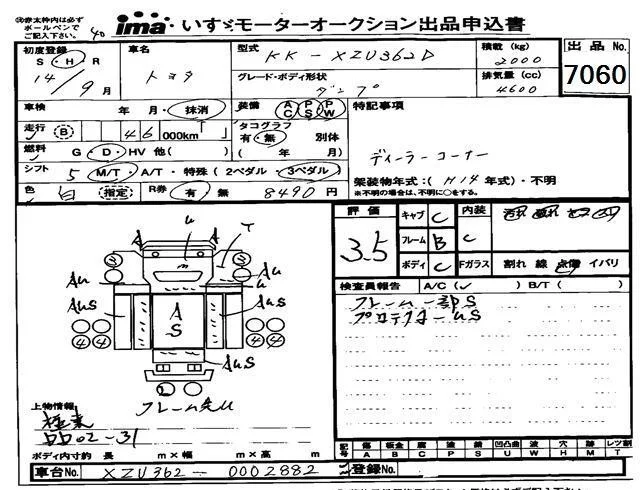 ※赤太枠内は必ず
ボールペンで
ご記入下さい。
40
ima いすゞモーターオークション出品申込書
初度登録
S・H・R
14/9月
車名
トヨタ
型式
KK-XZU362D
グレード・ボディ形状
ダンプ
積載 (kg)
2000
排気量 (cc)
4600
出品 No.
7060
車検 年 月・抹消
装備 AC PS PW
特記事項
走行 B 46 000km
タコグラフ
有・無 別体
( 年 月)
燃料 G・D・HV 他( )
ディーラーコーナー
シフト 5 M/T・A/T・特殊(2ペダル・3ペダル)
架装物年式:( H14 年式)・不明
※不明の場合は、不明に○をする。
色 白 指定 R券 有 無 8490円
評価
3.5
キャブ C
フレーム B
ボディ C
内装 C
Fガラス 割れ 線 点傷 イバリ
検査員報告 A/C(✓) B/T( )
フレーム一部S
プロテクターUS
A
u
T
m
Au
Au
AuS
AuS
A
S
AuS
4 4
4 4
フレーム先U
上物情報
極東
DD02-31
ボディ内寸約 長 m×幅 m×高 m
記号 傷 板金 腐 波 錆 凹凸曲 波 穴 跡 レツ割
A B C P S U W H M T
車台No. XZU362-0002882
登録No.